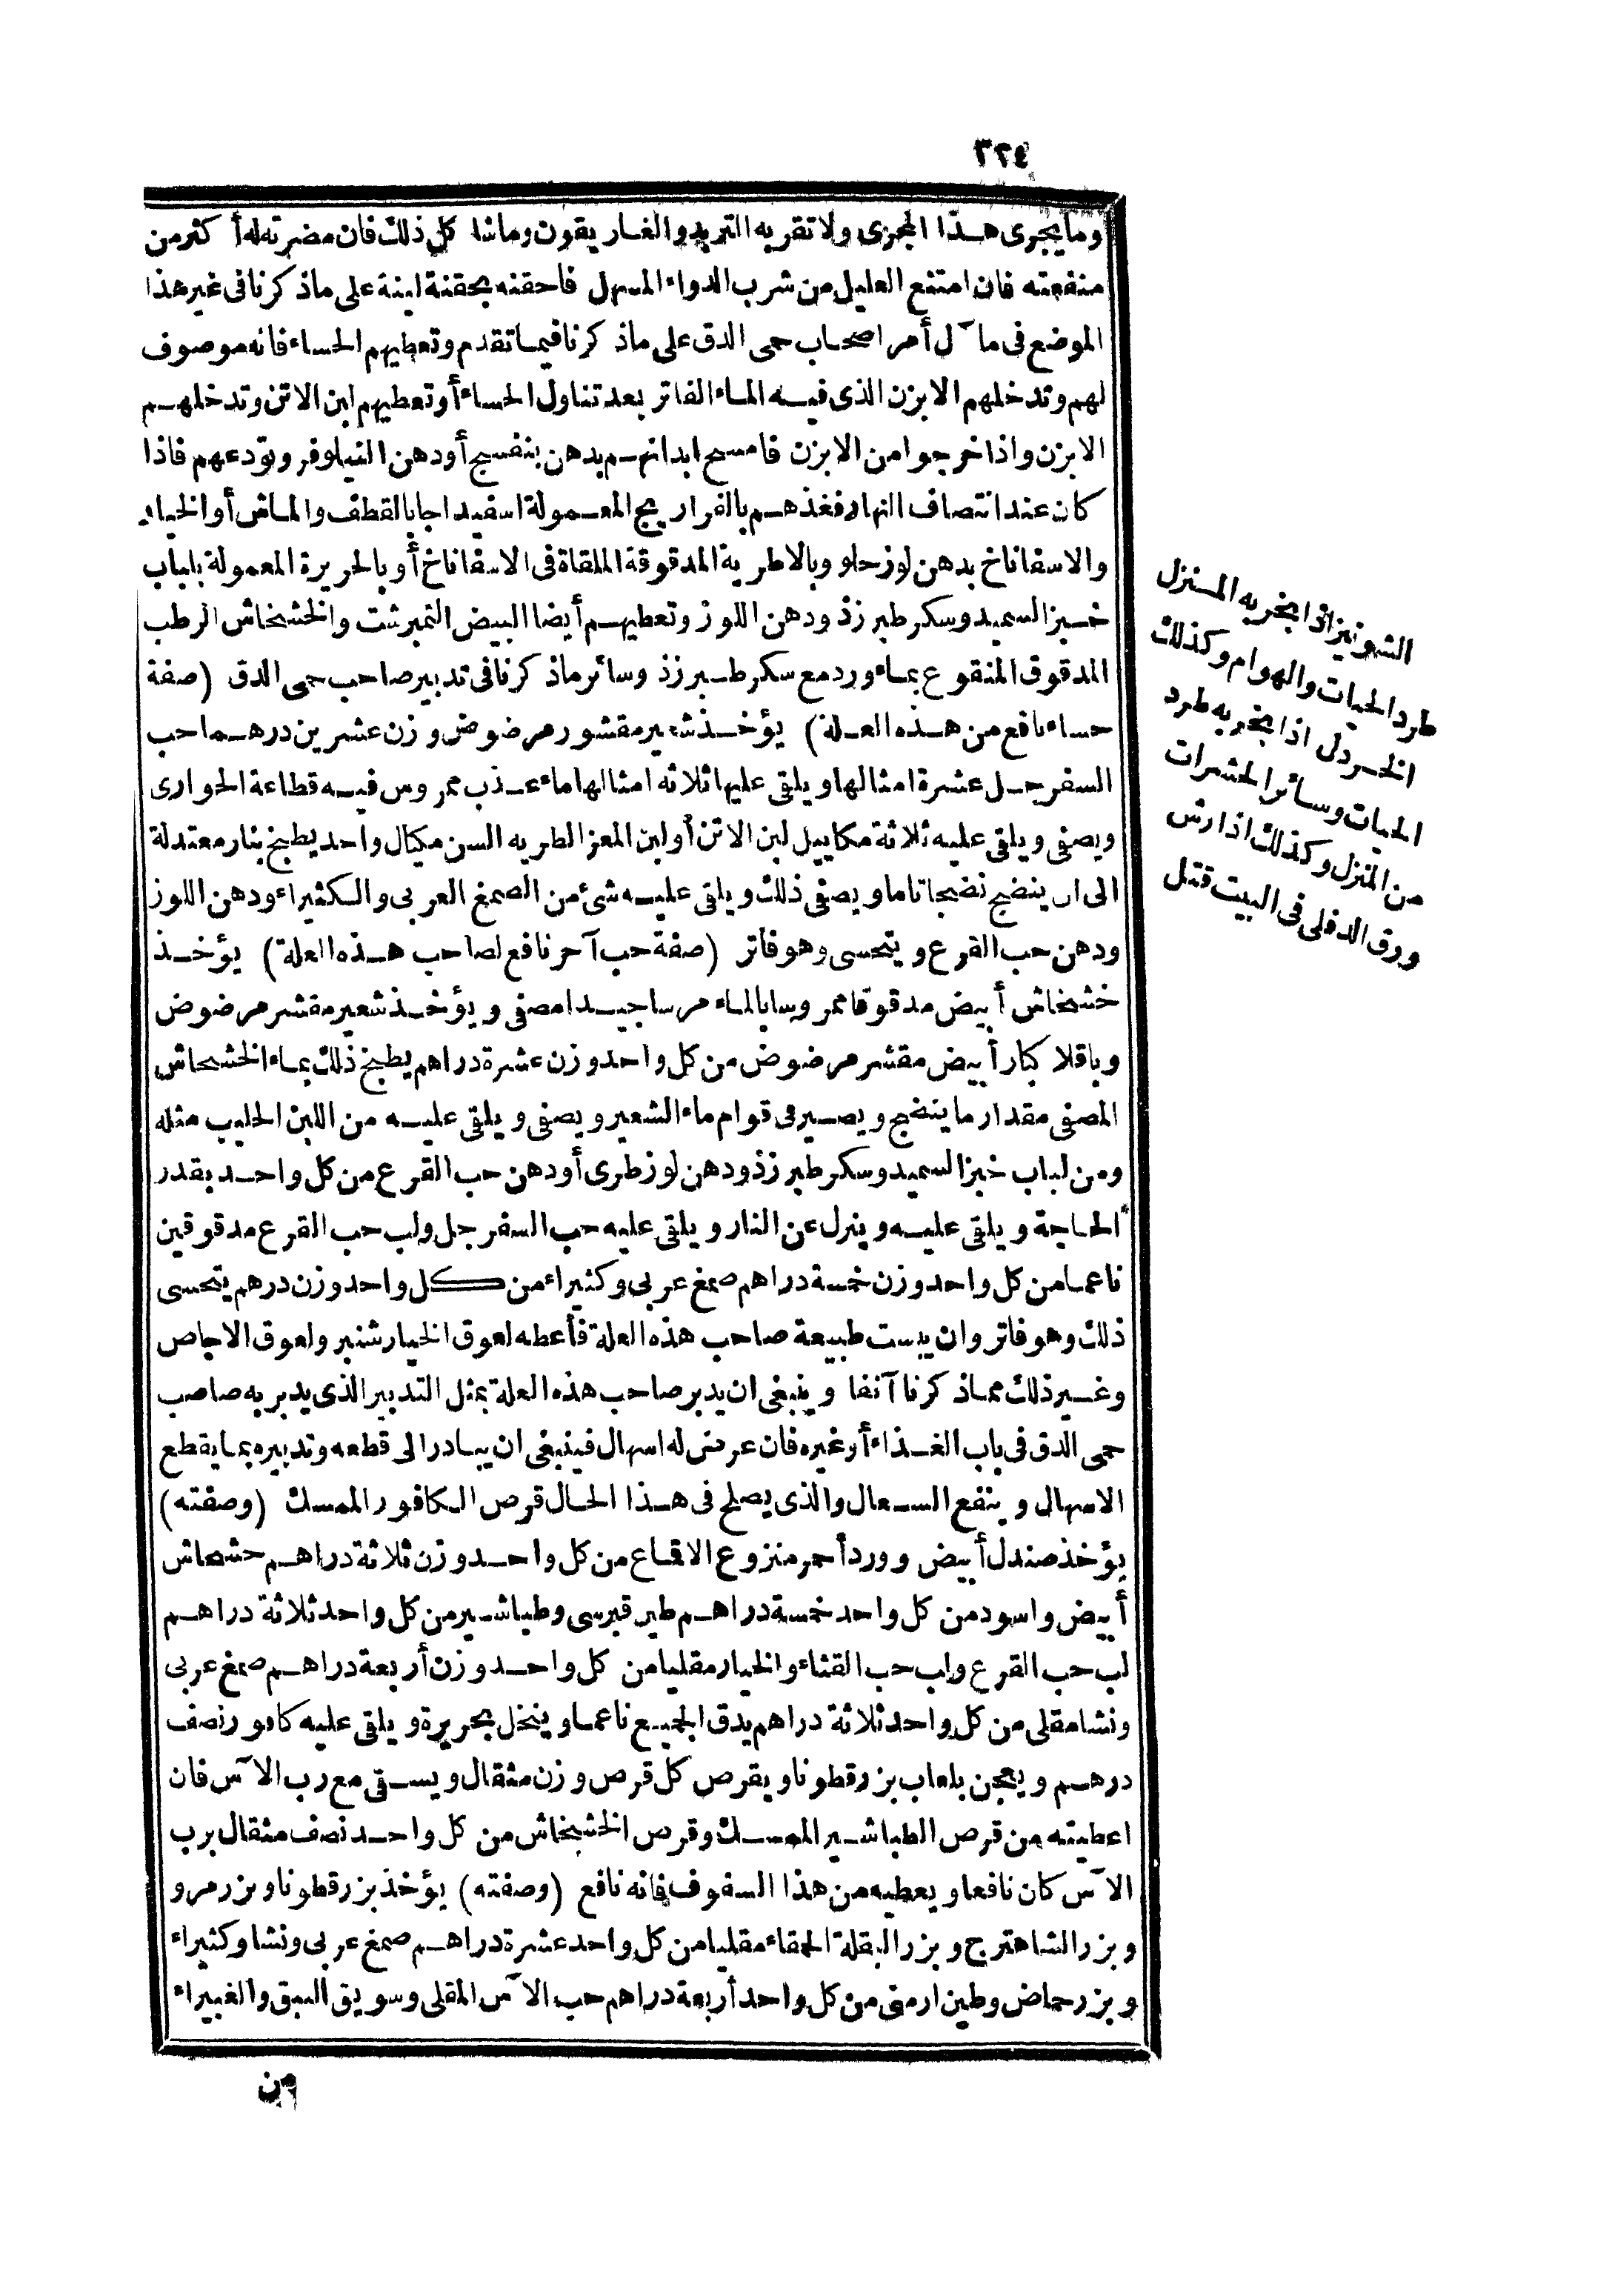 ٣٢٤
وما يجرى هـذا المجرى ولا تقربه التربد والغـاريقون وما شا كل ذلك فان مضرته له أكثر من
منفعته فان امتنع العليل من شرب الدواء المسهل فاحقنه بحقنة لينة على ماذكرنا فى غير هذا
الموضع فى ما آل أمر اصحاب حمى الدق على ماذكرنا فيما تقدم وتعطيهم الحساء فانه موصوف
لهم وتدخلهم الابزن الذى فيـه الماء الفاتر بعد تناول الحساء أو تعطيهم لبن الاتن وتدخلهـم
الابزن واذا خرجوا من الابزن فامسح ابدانهـم بدهن بنفسج أو دهن النيلوفر وتودعهم فاذا
كان عند انتصاف النهار فغذهـم بالفراريج المعـمولة اسفيداجا بالقطف والماش أو الخيار
والاسفاناخ بدهن لوز حلو وبالاطرية المدقوقة الملقاة فى الاسفاناخ أو بالحريرة المعمولة بلباب
خـبز السميد وسكر طبرزذ ودهن اللوز وتعطيهـم أيضا البيض النمبرشت والخشخاش الرطب
المدقوق المنقوع بمـاء ورد مع سكر طـبرزذ وسائر ماذكرنا فى تدبير صاحب حمى الدق (صفة
حساء نافع من هـذه العـلة) يؤخـذ شعير مقشور مرضوض وزن عشرين درهـما حب
السفرجـل عشرة امثالها ويلقى عليها ثلاثه امثالها ماء عـذب ممروس فيـه قطاعة الحوارى
ويصفى ويلقى عليه ثلاثة مكاييل لبن الاتن أو لبن المعز الطريه السن مكيال واحد يطبخ بنار معتدلة
الى ان ينضج نضجا تاما ويصفى ذلك ويلقى عليـه شئ من الصمغ العربى والـكثيراء ودهن اللوز
ودهن حب القرع ويتحسى وهو فاتر (صفة حب آخر نافع لصاحب هـذه العلة) يؤخـذ
خشخاش أبيض مدقوقا ممروسا بالماء مرسا جيـدا مصفى ويؤخـذ شعير مقشر مرضوض
وباقلا كبار أبيض مقشر مرضوض من كل واحد وزن عشرة دراهم يطبخ ذلك بمـاء الخشخاش
المصفى مقدار ما ينضج ويصـير فى قوام ماء الشعير ويصفى ويلقى عليـه من اللبن الحليب مثله
ومن لباب خبز السميد وسكر طبرزذ ودهن لوز طرى أو دهن حب القرع من كل واحـد بقدر
الحاجة ويلقى عليـه وينزل عن النار ويلقى عليه حب السفرجل ولب حب القرع مدقوقين
ناعما من كل واحد وزن خمسة دراهم صمغ عربى وكثيراء من كـل واحد وزن درهم يتحسى
ذلك وهو فاتر وان يبست طبيعة صاحب هذه العلة فأعطه لعوق الخيارشنبر ولعوق الاجاص
وغـير ذلك مماذكرنا آنفا وينبغى ان يدبر صاحب هذه العلة بمثل التدبير الذى يدبر به صاحب
حمى الدق فى باب الغـذاء أو غيره فان عرض له اسهال فينبغى ان يبادر الى قطعه وتدبيره بما يقطع
الاسهال وينفع السـعال والذى يصلح فى هـذا الحال قرص الـكافور الممسك (وصفته)
يؤخذ صندل أبيض وورد أحمر منزوع الاقماع من كل واحـد وزن ثلاثة دراهـم خشخاش
أبيض واسود من كل واحد خمسة دراهـم طين قبرسى وطباشـير من كل واحد ثلاثة دراهـم
لب حب القرع ولب حب القثاء والخيار مقليا من كل واحـد وزن أربعة دراهـم صمغ عربى
ونشا مقلى من كل واحد ثلاثة دراهم يدق الجميع ناعما وينخل بحريرة ويلقى عليه كافور نصف
درهـم ويعجن بلعاب بزرقطونا ويقرص كل قرص وزن مثقال ويسـقى مع رب الآس فان
اعطيته من قرص الطباشـير الممسـك وقرص الخشخاش من كل واحـد نصف مثقال برب
الآس كان نافعا ويعطيه من هذا السفوف فانه نافع (وصفته) يؤخذ بزرقطونا وبزر مرو
وبزر الشاهترج وبزر البقلة الحمقاء مقليا من كل واحد عشرة دراهـم صمغ عربى ونشا وكثيراء
وبزر حماض وطين ارمنى من كل واحد أربعة دراهم حب الآس المقلى وسويق النبق والغبيراء
من
الشونيز اذا بخر به المـنزل
طرد الحيات والهوام وكذلك
الخـردل اذا بخر به طرد
الحيات وسائر الحشرات
من المنزل وكذلك اذا رش
ورق الدفلى فى البيت قتل